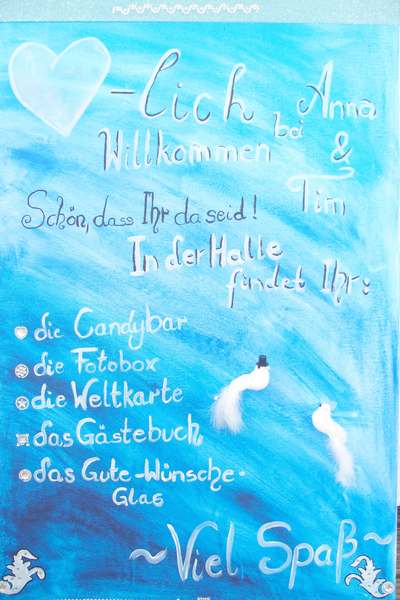 -lich
Willkommen bei Anna
&
Tim
Schön, dass Ihr da seid!
In der Halle
findet Ihr:
die Candybar
die Fotobox
die Weltkarte
das Gästebuch,
das Gute-Wünsche-
Glas
~Viel Spaß~